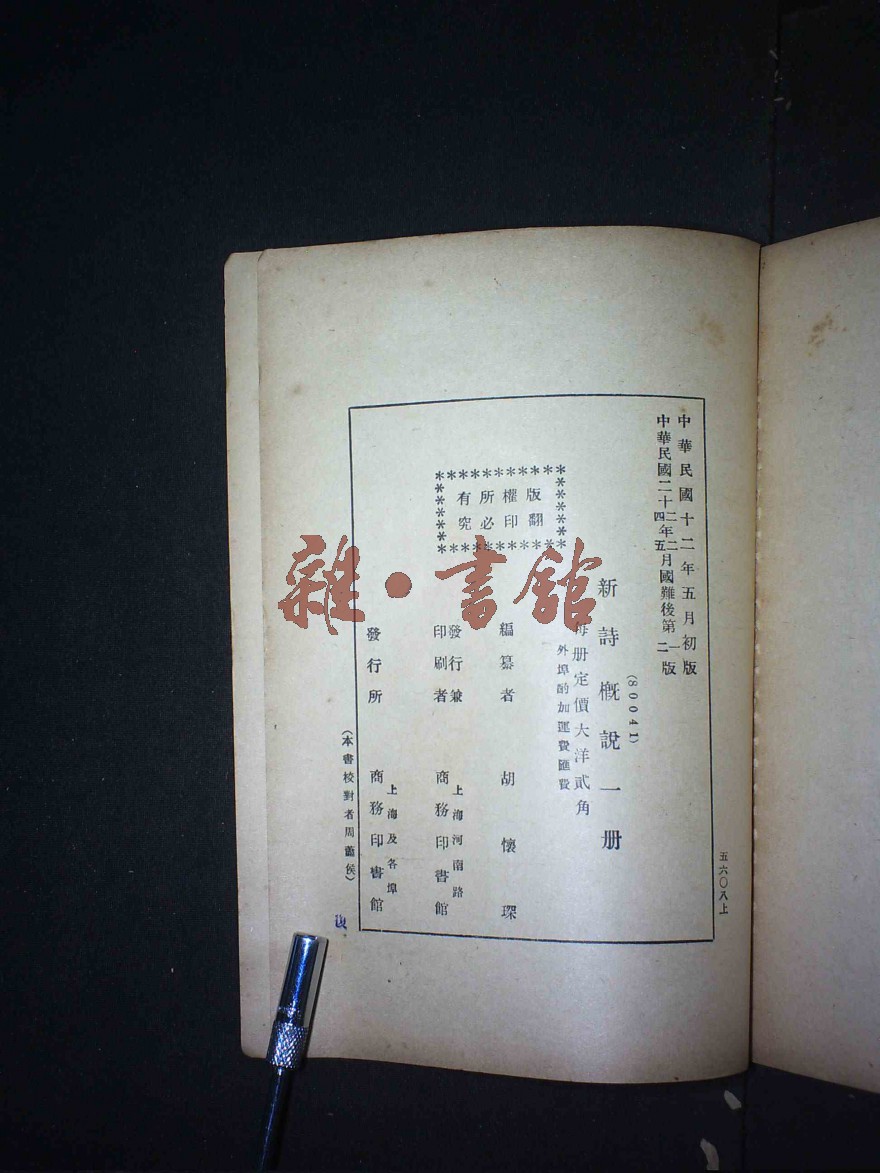 中華民國十二年五月初版
中華民國二十二年二月國難後第一版
四 五 二
(80041)
新詩概說一册
每册定價大洋貳角
外埠酌加運費匯費
版權所有
翻印必究
編纂者 胡懷琛
發行兼印刷者 上海河南路 商務印書館
發行所 上海及各埠 商務印書館
(本書校對者周 侯)
五六〇八上
雜·書館